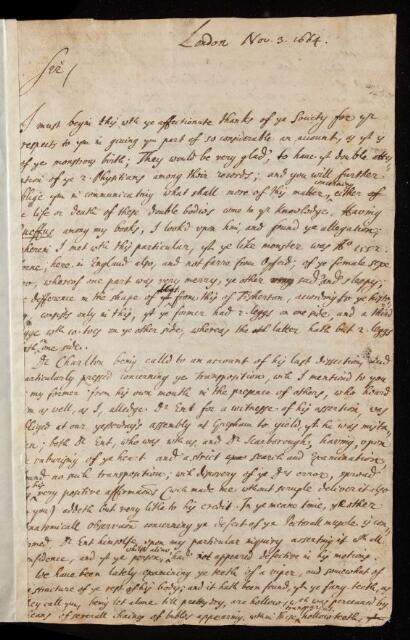 London Nov. 3. 1664.
Sir /
I must begin this wth ye affectionate thanks of ye Society for yr
respects to ym in giving ym part of so considerable an account, as yt is
of ye monstrous birth; They would be very glad, to have yt double attes
tation of ye 2 Physitians among their records; and you will further
oblige ym in communicating what shall more of this matter, concerning either of
e life or death of these double bodies come to yr knowledge. Having
among my books, I look'd upon him, and found ye allegation;
wherein I met wth this particular, yt ye like monster was 1552.
here in England also, and not farre from Oxford; of ye female sexe
whereof one part was very merry, ye other sad and sleepy;
e difference in the shape of yt from this of Fisherton, according to ye history
consists only in this, yt ye former had 2. leggs on one side, and a third
legge wth 10. toes on ye other side, whereas the latter hath but 2. leggs
one side.
Dr Charlton being called to an account of his last dissection, and
particularly pressed concerning ye transposition, wch I mention'd to you
my former from his own mouth in the presence of others, who heard
him as well, as I, alledge Dr Ent for a witnesse of his assertion, was
obliged at our yesterday's assembly at Gresham to yield, yt he was mista
ken; both Dr Ent, who was wth us, and Dr Scarborough, having, upon
ye heart and a strict search and examination
found no such transposition; wch discovery of ye Drs error, spread
his very positive affirmations (wch made me wthout scruple deliver it also
you) addeth but very little to his credit. In ye meane time, ye other
anatomicall observation concerning ye defect of ye Pectorall muscle, is con
firmed Dr Ent himselfe, upon my particular inquiry asserting it wth all
confidence, and yt ye person, whilst alive, had not appeared defective in his motions.
We have been lately examining ye teeth of a viper, and somewhat of
e structure of ye rest of his body; and it hath been found, yt ye fang teeth, as
they call ym, being let alone till pretty dry, are hollow; wch was perceaved by
means of severall chains of bubles appearing, when these hollow teeth,